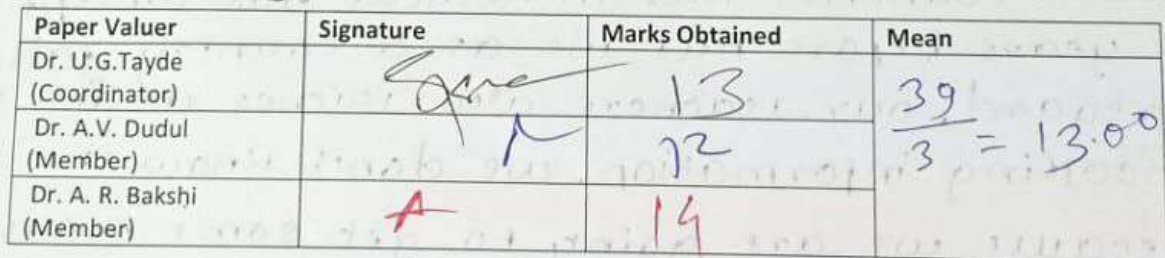 Paper Valuer Signature Marks Obtained Mean
Dr. U.G.Tayde
(Coordinator) 13
Dr. A.V. Dudul
(Member) 12
Dr. A. R. Bakshi
(Member) A 14
39
3 = 13.00